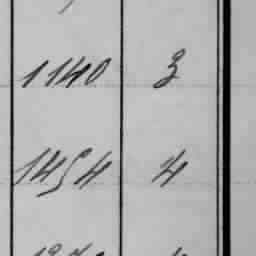 1140 3
1454 4